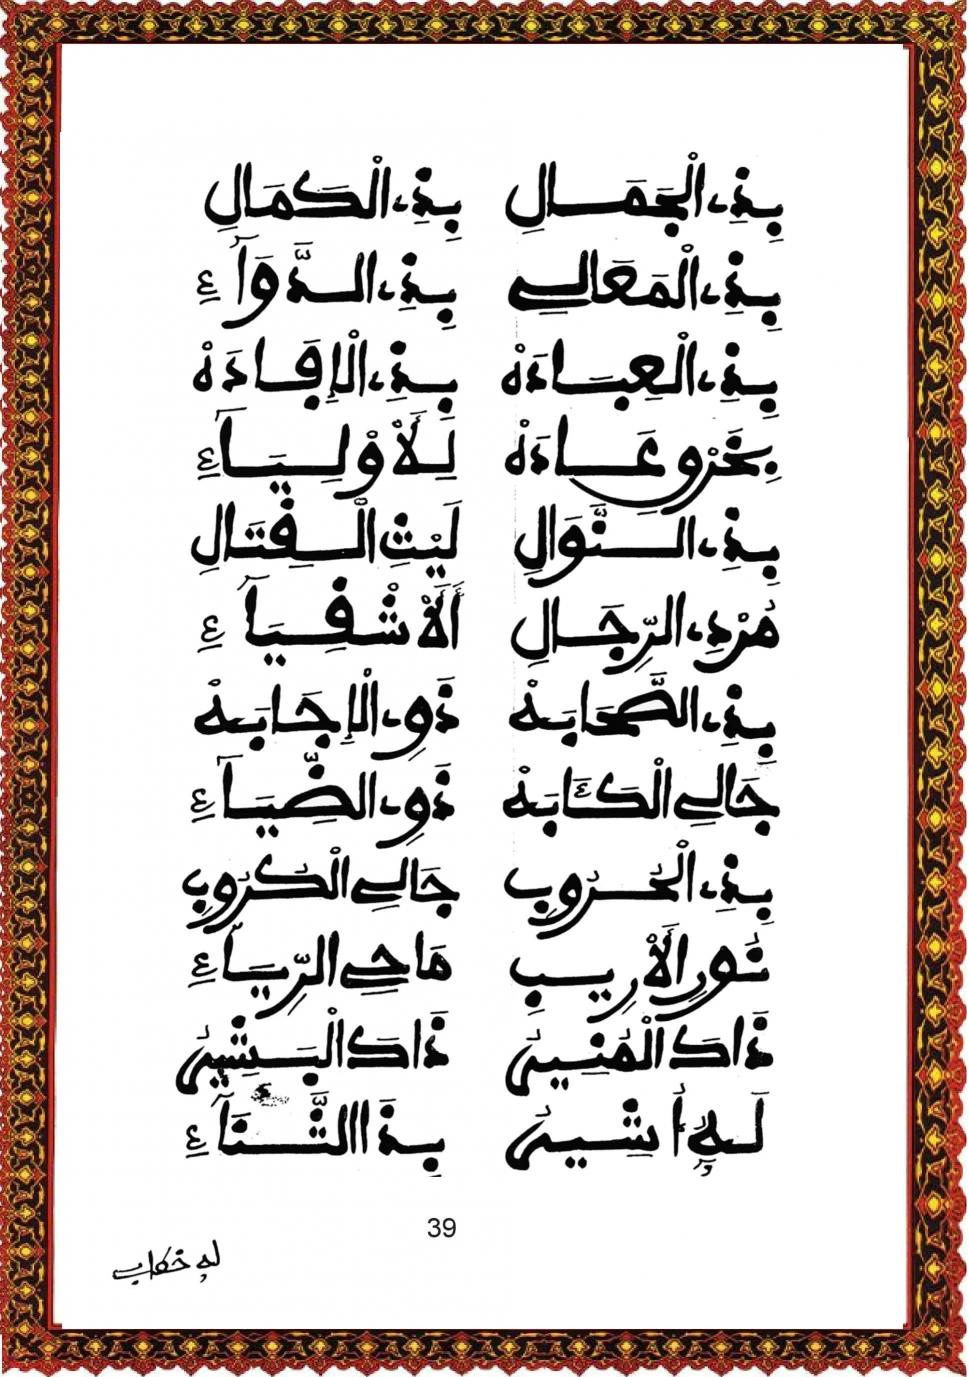 بِذِي الْجَمَالِ بِذِي الْكَمَالِ
بِذِي الْمَعَالِي بِذِي الدَّوَآءِ
بِذِي الْعِبَادَهْ بِذِي الْإِفَادَهْ
بِخَرْقِ عَادَهْ لِلَأوْلِيَآءِ
بِذِي النَّوَالِ لَيْثِ الْقِتَالِ
مُرْدِي الرِّجَالِ أَلَأشْقِيَآءِ
بِذِي الصَّحَابَهْ ذَوِي الْإِجَابَهْ
جَالِي الْكَئَابَهْ ذَوِي الضِّيَآءِ
بِذِي الْحُرُوبِ جَالِي الْكُرُوبِ
نُورِ الْأَرِيبِ مَاحِي الرِّيَآءِ
ذَاكَ الْمُنِيرُ ذَاكَ الْبَشِيرُ
لَهُ أُشِيرُ بِذَا الثَّنَآءِ
39
له خطاب